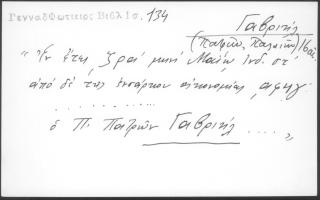 Γενναδφωτειος Βιβλ Ισ. 134
Γαβριήλ
(Παλαιῶν Πατρῶν) 16αι.
" Ἐν ἔτει ζραʹ μηνὶ Μαΐῳ ἰνδ. στʹ
ἀπὸ δὲ τῆς ἐνσάρκου οἰκονομίας αφηζʹ
. . . . . . . . . . .
ὁ Π. Πατρῶν Γαβριήλ . . . . "